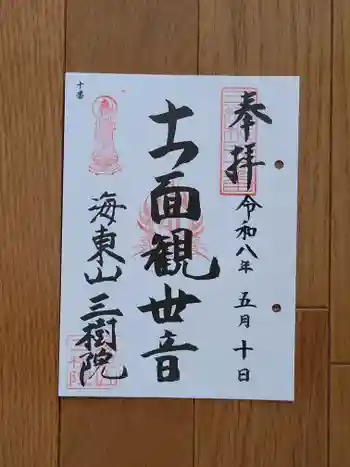 奉拝
令和八年 五月 十日
十一面観世音
十番
海東山 三樹院